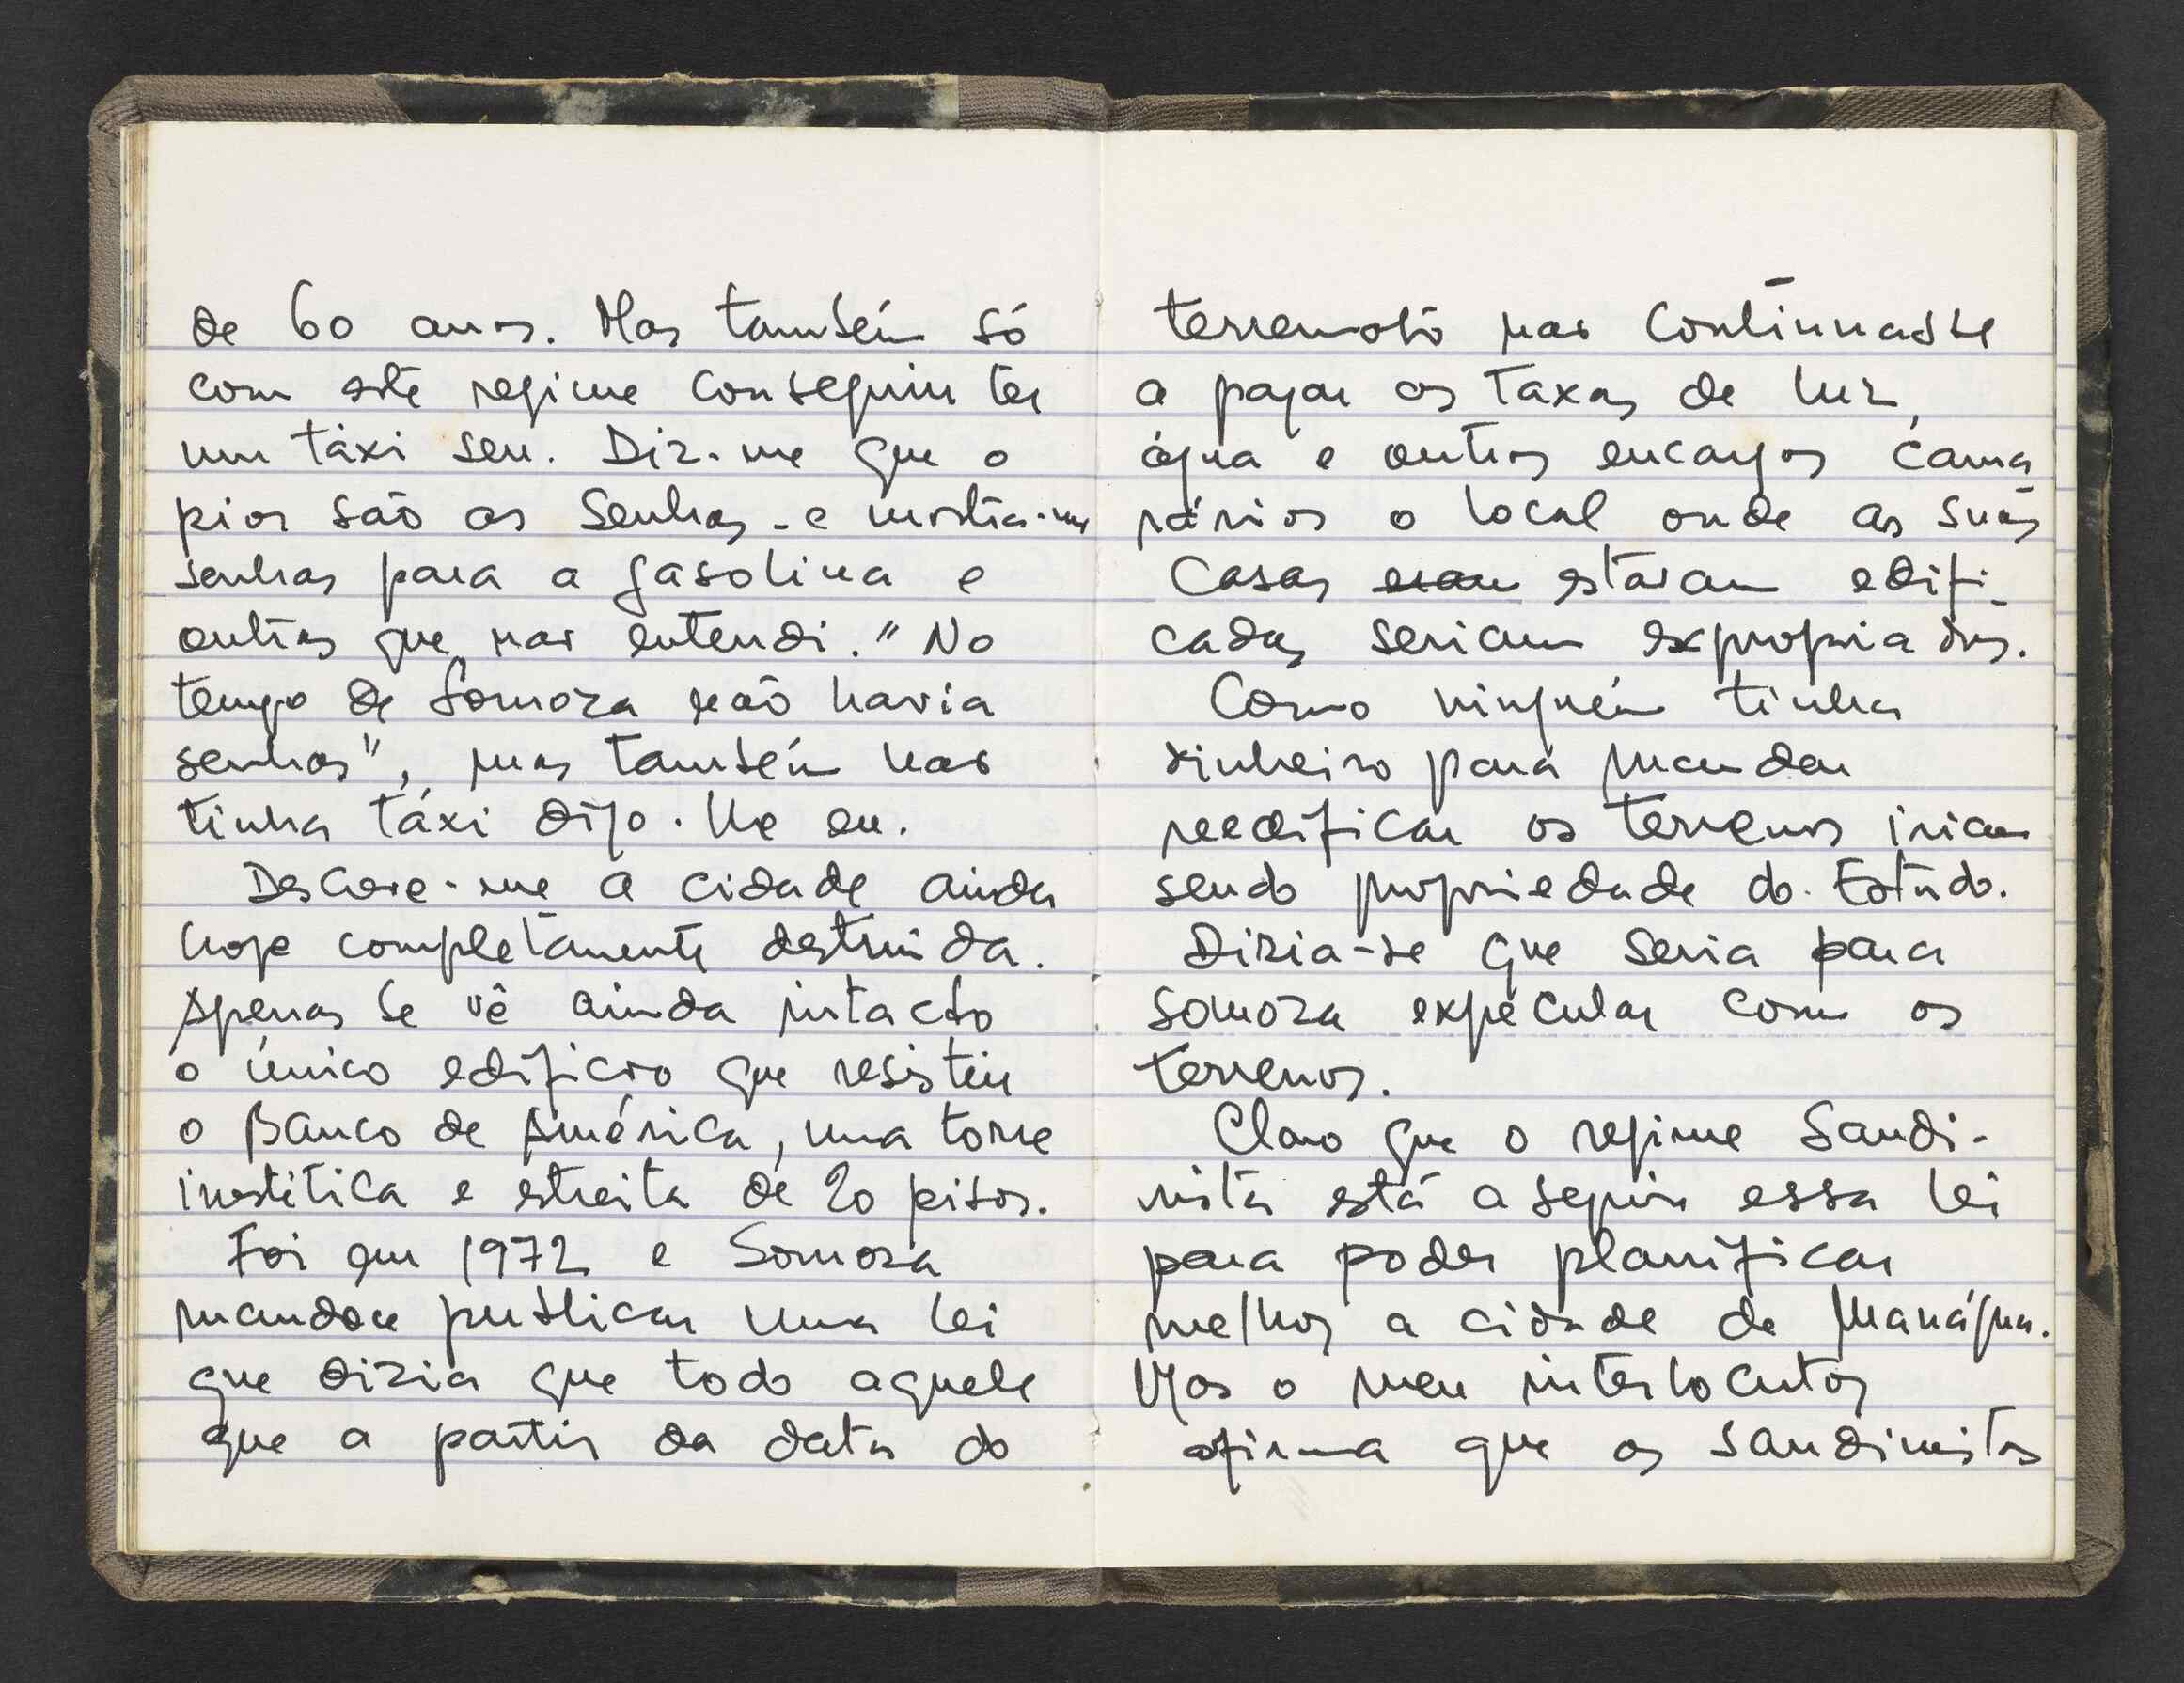 de 60 anos. Mas também só
com este regime conseguiu ter
um táxi seu. Diz-me que o
pior são as senhas - e mostra-me
senhas para a gasolina e
outras que não entendi. "No
tempo de Somoza não havia
senhas", mas também não
tinha táxi digo-lhe eu.
Descreve-me a cidade ainda
hoje completamente destruida.
Apenas se vê ainda intacto
o único edifício que resistiu
o Banco de América, uma torre
inestética e estreita de 20 pisos.
Foi em 1972 e Somoza
mandou publicar uma lei
que dizia que todo aquele
que a partir da data do
terremoto não continuasse
a pagar as taxas de luz,
água e outros encargos cama
rários o local onde as suas
casas eram estavam edifi-
cadas seriam expropriados.
Como ninguém tinha
dinheiro para mandar
reedificar os terrenos iriam
sendo propriedade do Estado.
Dizia-se que seria para
Somoza expecular com os
terrenos.
Claro que o regime Sandi-
nista está a seguir essa lei
para poder planificar
melhor a cidade de Manágua.
Mas o meu interlocutor
afirma que os sandinistas